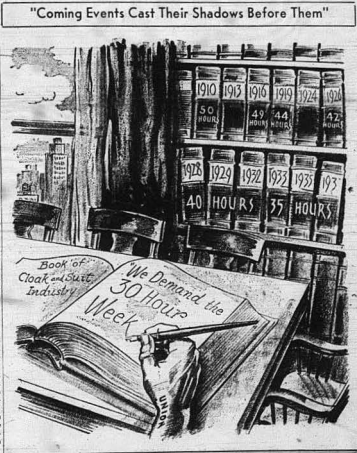 "Coming Events Cast Their Shadows Before Them"
1910 1913 1916 1919 1924 1926
50 HOURS 49 HOURS 44 HOURS 42 HOURS
1928 1929 1932 1933 1935 193
40 HOURS 35 HOURS
Book of
Cloak and Suit
Industry
"We Demand the
30 Hour
Week
UNION